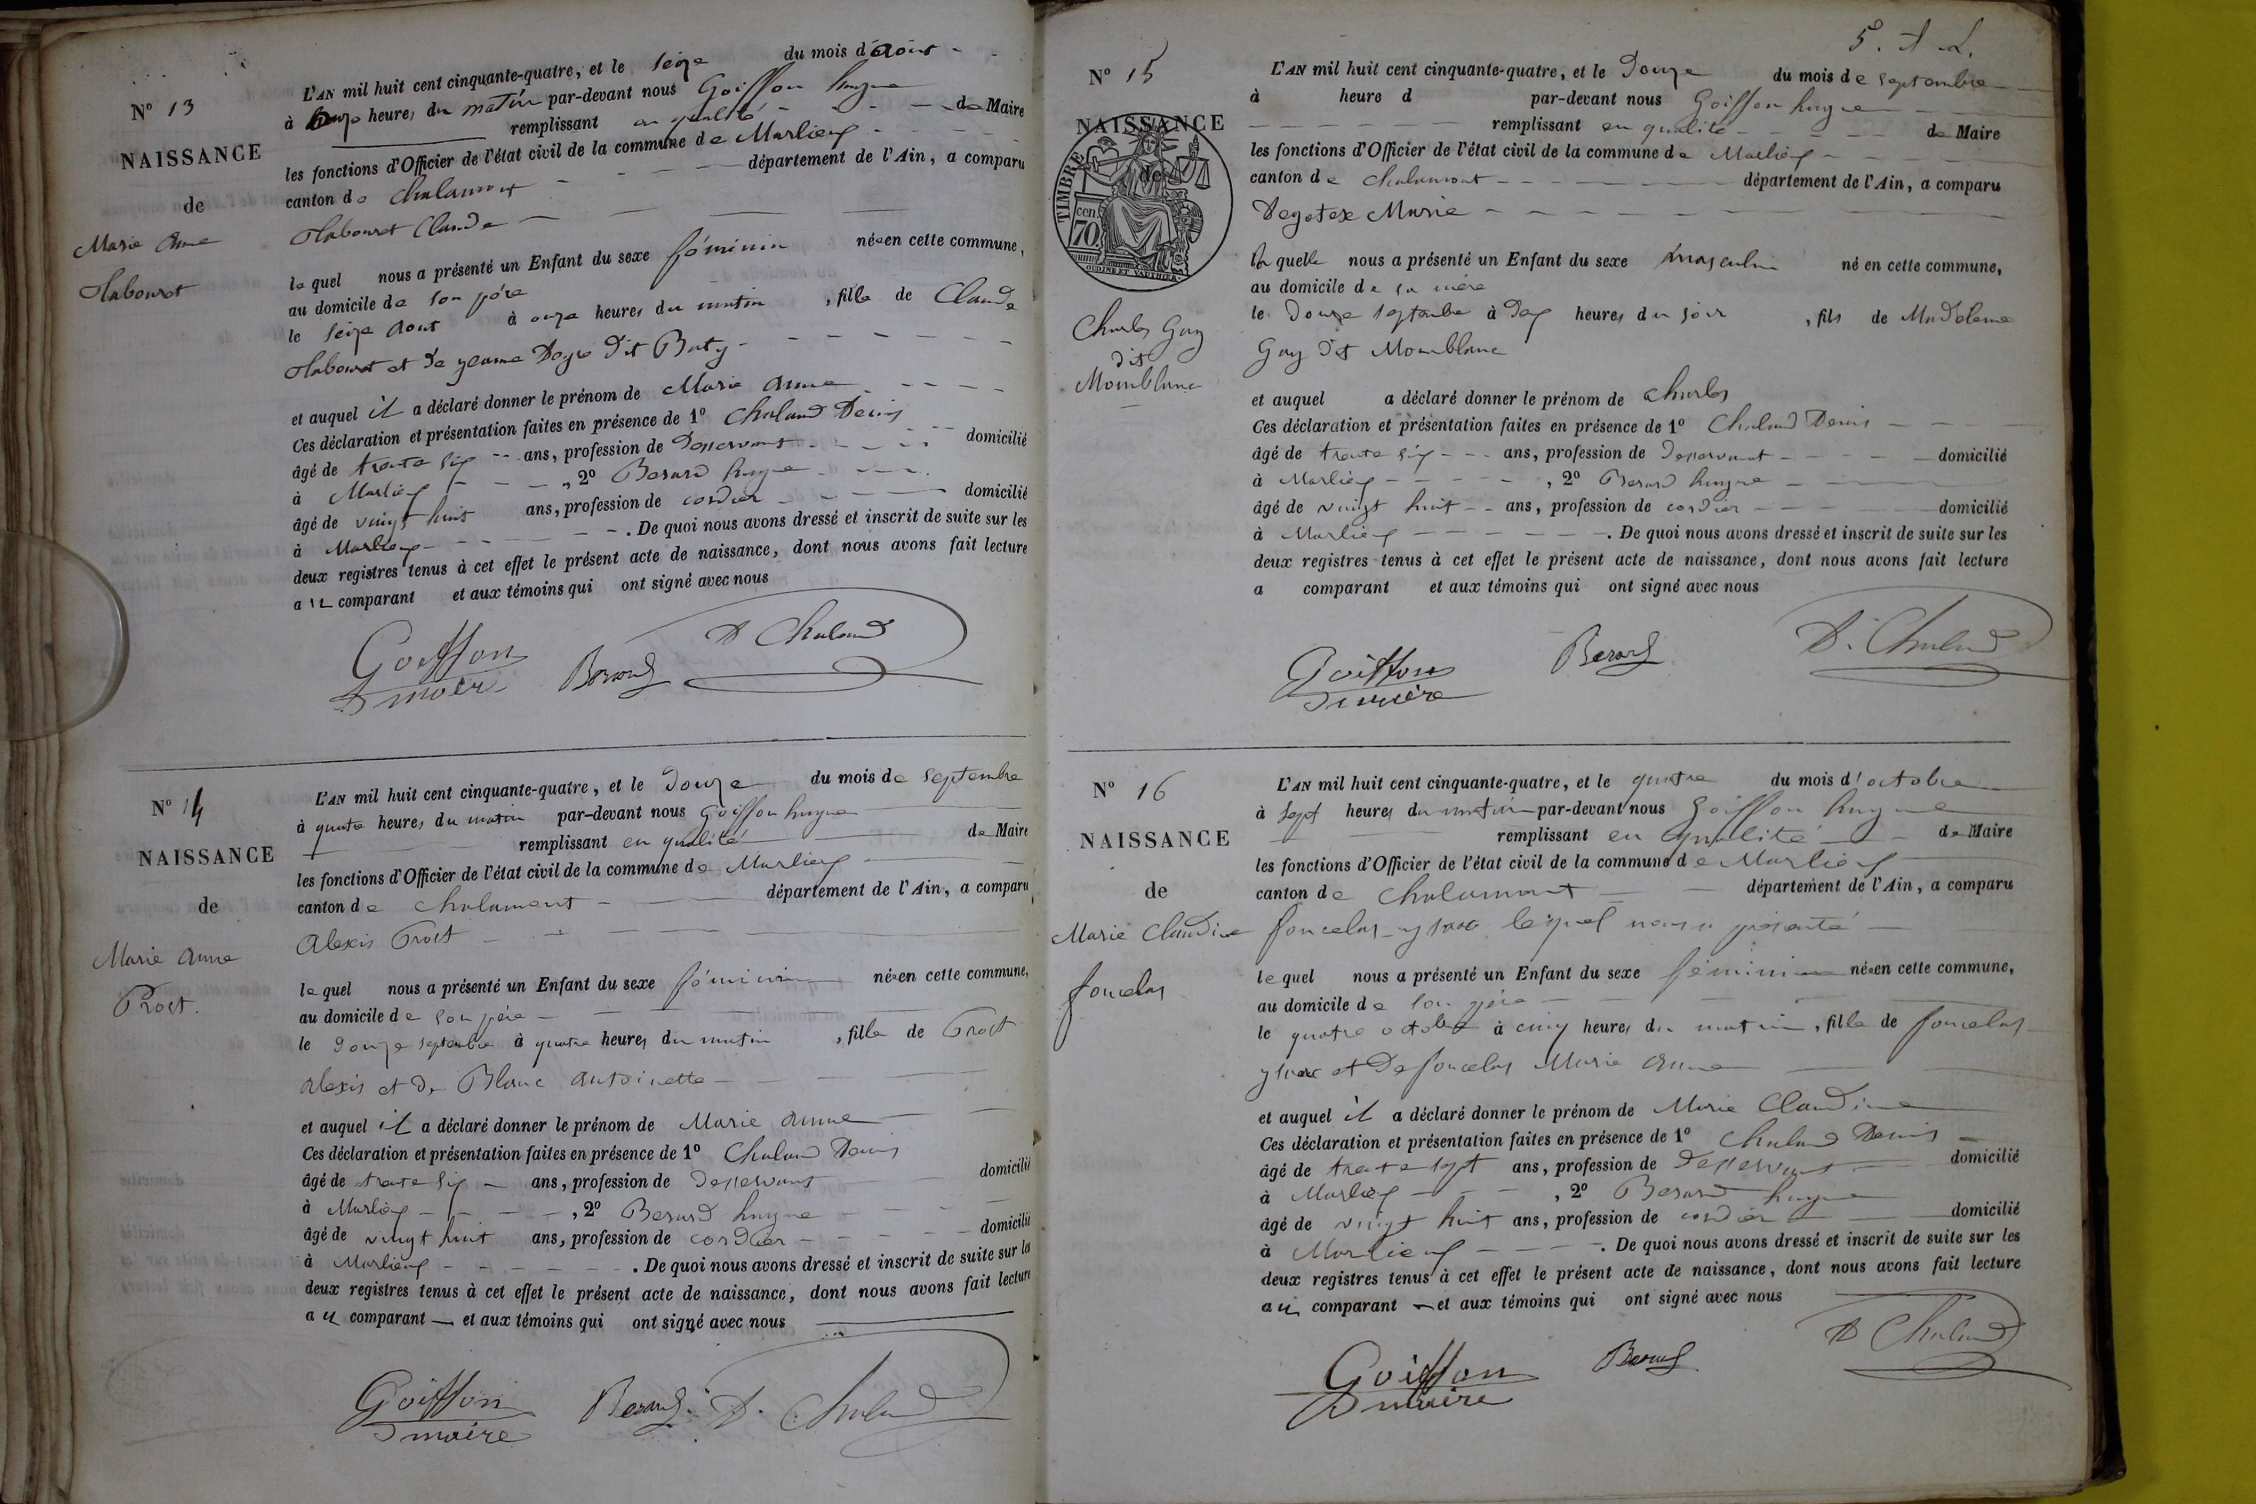 N° 13
NAISSANCE
de
Marie Anne
Habouret
L'AN mil huit cent cinquante-quatre, et le seize du mois d'août
à onze heures du matin par-devant nous Goiffon hugne
remplissant en qualité de Maire
les fonctions d'Officier de l'état civil de la commune de Marlieux
canton de Chalamont département de l'Ain, a comparu
Habouret Claude
lequel nous a présenté un Enfant du sexe féminin née en cette commune,
au domicile de son père
le seize aout à onze heures du matin, fille de Claude
Habouret et de Doyre dit Baty
et auquel il a déclaré donner le prénom de Marie Anne
Ces déclaration et présentation faites en présence de 1° Chaland Denis
âgé de trente six ans, profession de desservant domicilié
à Marlieux, 2° Berard hugne
âgé de vingt huit ans, profession de cordier domicilié
à Marlieux. De quoi nous avons dressé et inscrit de suite sur les
deux registres tenus à cet effet le présent acte de naissance, dont nous avons fait lecture
a u comparant et aux témoins qui ont signé avec nous
Goiffon
maire
Berard
D Chaland
N° 14
NAISSANCE
de
Marie Anne
Prost.
L'AN mil huit cent cinquante-quatre, et le douze du mois de septembre
à quatre heures du matin par-devant nous Goiffon hugne
remplissant en qualité de Maire
les fonctions d'Officier de l'état civil de la commune de Marlieux
canton de Chalamont département de l'Ain, a comparu
Alexis Prost
lequel nous a présenté un Enfant du sexe féminin née en cette commune,
au domicile de son père
le douze septembre à quatre heures du matin, fille de Prost
Alexis et de Blanc Antoinette
et auquel il a déclaré donner le prénom de Marie Anne
Ces déclaration et présentation faites en présence de 1° Chaland Denis
âgé de trente six ans, profession de desservant domicilié
à Marlieux, 2° Berard hugne
âgé de vingt huit ans, profession de cordier domicilié
à Marlieux. De quoi nous avons dressé et inscrit de suite sur les
deux registres tenus à cet effet le présent acte de naissance, dont nous avons fait lecture
a u comparant et aux témoins qui ont signé avec nous
Goiffon
maire
Berard
D. Chaland
5. A L.
N° 15
NAISSANCE
de
TIMBRE
cen.
70.
OUDINE ET VAUTHIER
Charles Gay
dit
Momblanc
L'AN mil huit cent cinquante-quatre, et le douze du mois de septembre
à heure d par-devant nous Goiffon hugne
remplissant en qualité de Maire
les fonctions d'Officier de l'état civil de la commune de Marlieux
canton de Chalamont département de l'Ain, a comparu
Degatex Marie
laquelle nous a présenté un Enfant du sexe masculin né en cette commune,
au domicile de sa mère
le douze septembre à dex heures du soir, fils de Madeleine
Gay dit Momblanc
et auquel a déclaré donner le prénom de Charles
Ces déclaration et présentation faites en présence de 1° Chaland Denis
âgé de trente six ans, profession de desservant domicilié
à Marlieux, 2° Berard hugne
âgé de vingt huit ans, profession de cordier domicilié
à Marlieux. De quoi nous avons dressé et inscrit de suite sur les
deux registres tenus à cet effet le présent acte de naissance, dont nous avons fait lecture
a comparant et aux témoins qui ont signé avec nous
Goiffon
maire
Berard
D. Chaland
N° 16
NAISSANCE
de
Marie Claudine
foncelas
L'AN mil huit cent cinquante-quatre, et le quatre du mois d'octobre
à sept heures du matin par-devant nous Goiffon hugne
remplissant en qualité de Maire
les fonctions d'Officier de l'état civil de la commune de Marlieux
canton de Chalamont département de l'Ain, a comparu
foncelas lequel nous a présenté
lequel nous a présenté un Enfant du sexe féminin née en cette commune,
au domicile de son père
le quatre octobre à cinq heures du matin, fille de foncelas
et de foncelas Marie Anne
et auquel il a déclaré donner le prénom de Marie Claudine
Ces déclaration et présentation faites en présence de 1° Chaland Denis
âgé de trente sept ans, profession de desservant domicilié
à Marlieux, 2° Berard hugne
âgé de vingt huit ans, profession de cordier domicilié
à Marlieux. De quoi nous avons dressé et inscrit de suite sur les
deux registres tenus à cet effet le présent acte de naissance, dont nous avons fait lecture
a u comparant et aux témoins qui ont signé avec nous
Goiffon
maire
Berard
D Chaland